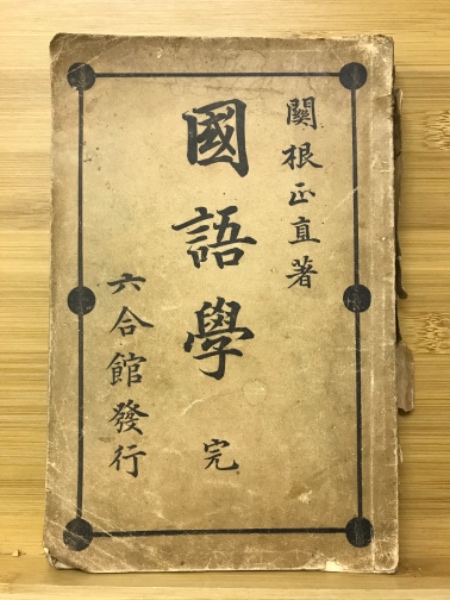 關根正直著
國語學 完
六合館發行